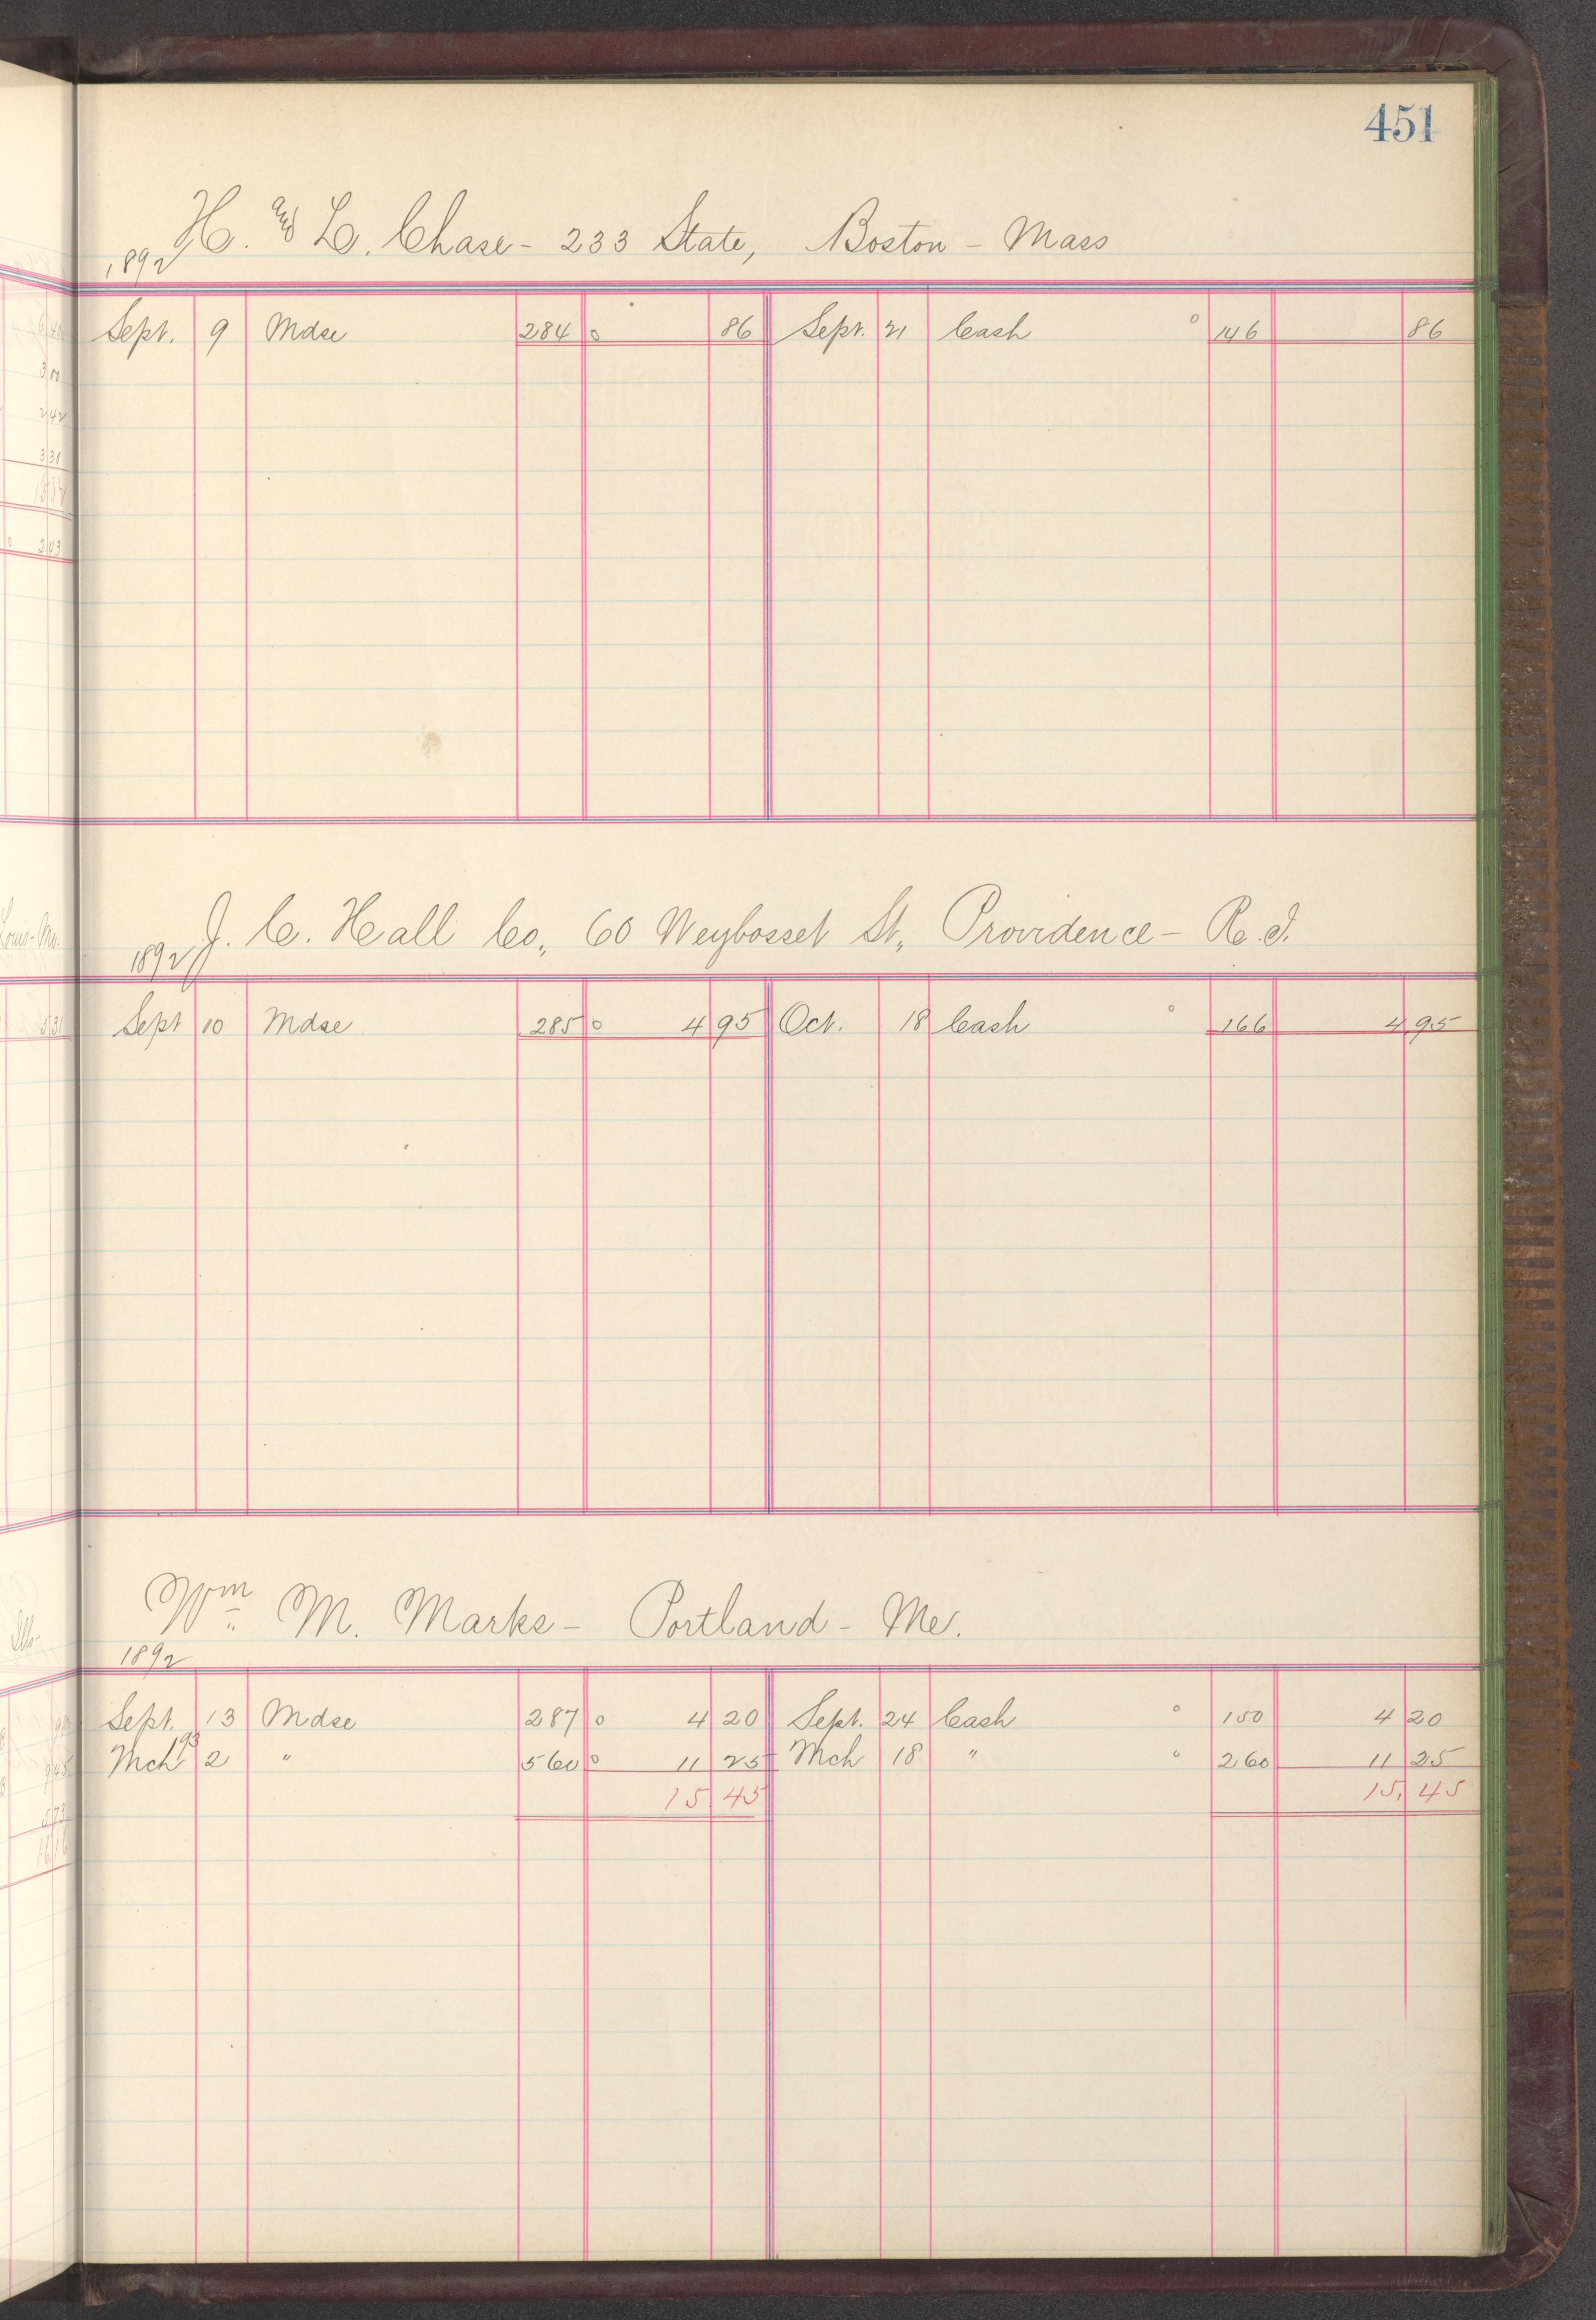 451
H. and L. Chase - 233 State, Boston - Mass
1892
Sept. 9 Mdse 284 o 86 Sept. 21 Cash o 146 86
J. C. Hall Co., 60 Weybosset St., Providence - R. I.
1892
Sept 10 Mdse 285 o 4 95 Oct. 18 Cash o 166 4 95
Wm M. Marks - Portland - Me.
1892
Sept. 13 Mdse 287 o 4 20 Sept. 24 Cash o 150 4 20
Mch 93 2 " 560 o 11 25 Mch 18 " o 260 11 25
15 45 15, 45